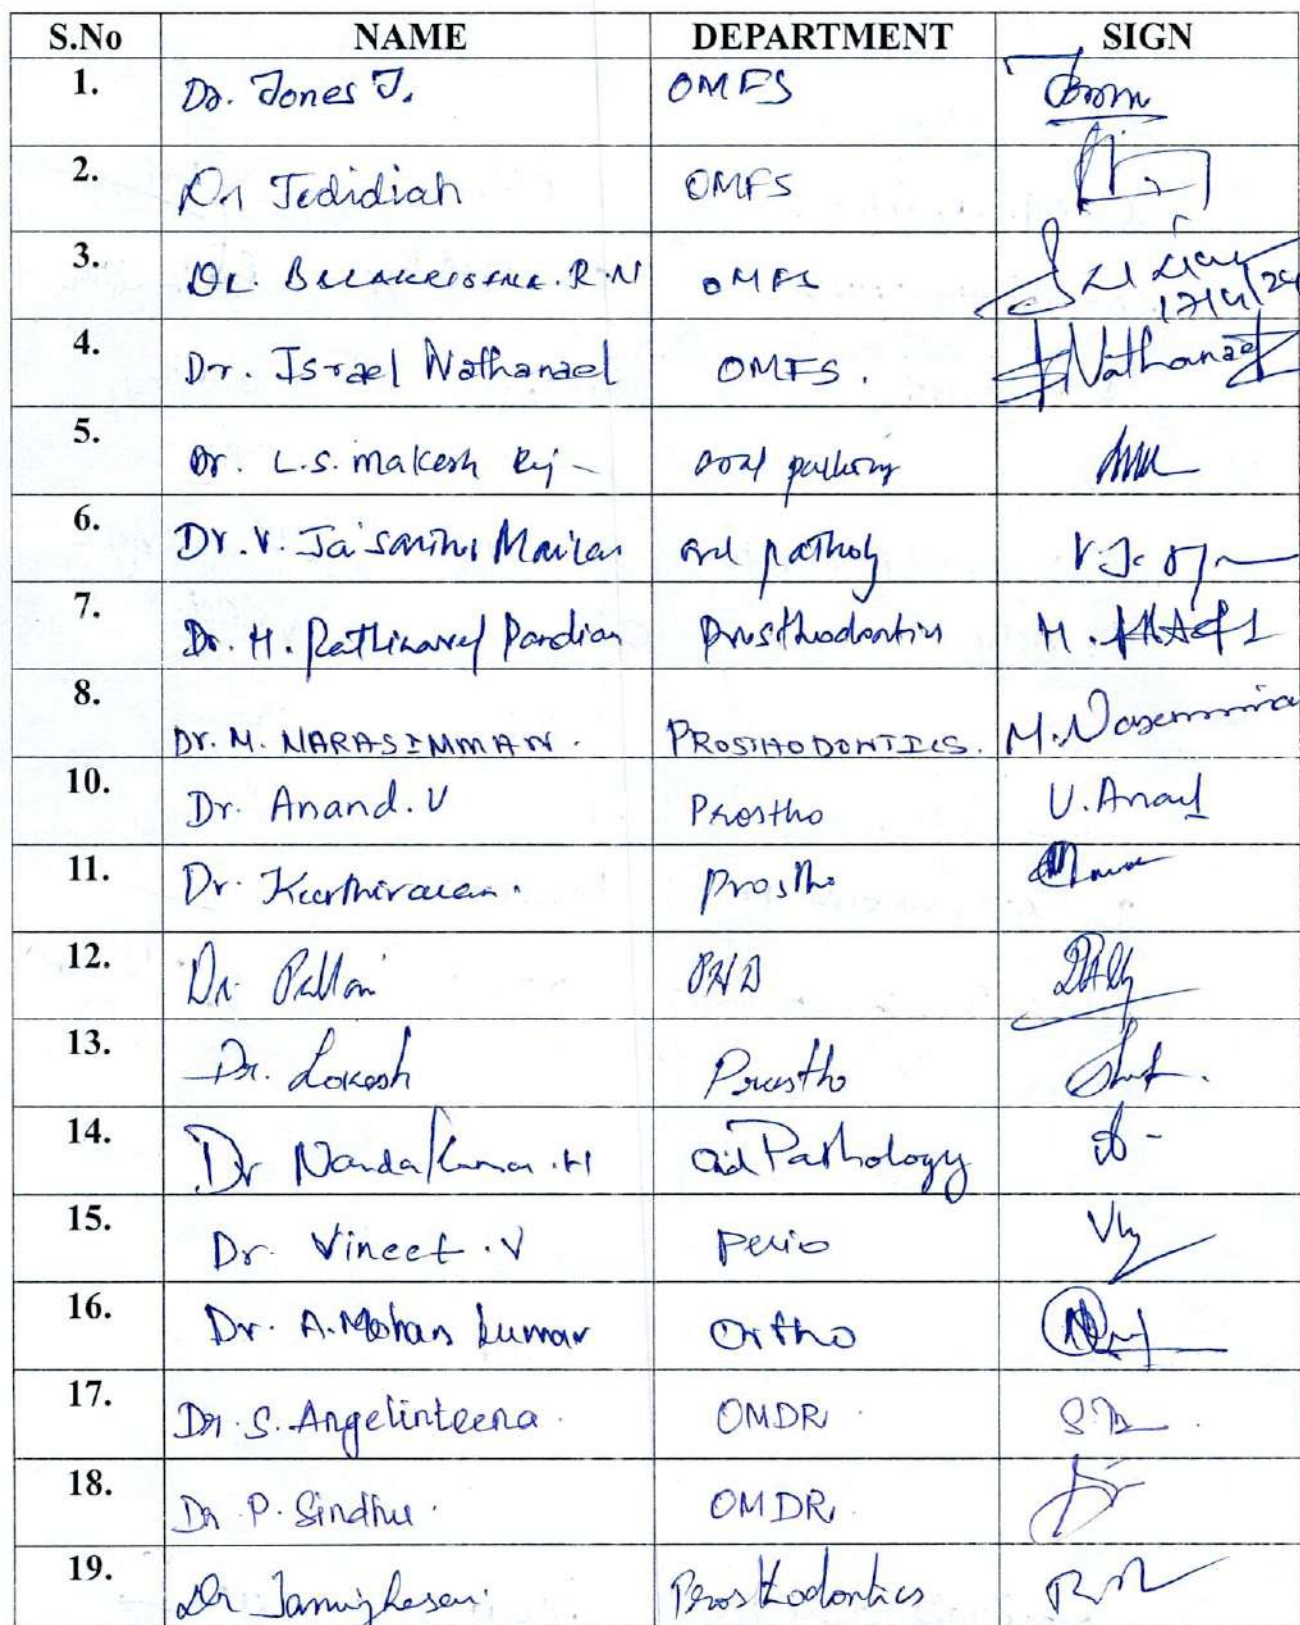 S.No NAME DEPARTMENT SIGN
1. Dr. Jones J. OMFS
2. Dr Jedidiah OMFS
3. Dr. Balakrishna. R.N OMFS 17/4/24
4. Dr. Israel Nathanael OMFS. Nathanael
5. Dr. L.S. Makesh Raj oral pathology
6. Dr. V. oral pathology
7. Dr. M. Rathinavel Pandian Prosthodontics M.
8. Dr. M. NARASIMMAN. PROSTHODONTICS. M.
10. Dr. Anand. V Prostho V. Anand
11. Dr. Keerthivasan. Prostho
12. Dr. Pallavi PHD
13. Dr. Lokesh Prostho
14. Dr Nanda Kumar. H Oral Pathology
15. Dr. Vineet. V Perio
16. Dr. A. Mohan kumar Ortho
17. Dr. S. Angelinteena. OMDR.
18. Dr P. Sindhu. OMDR.
19. Dr Prosthodontics